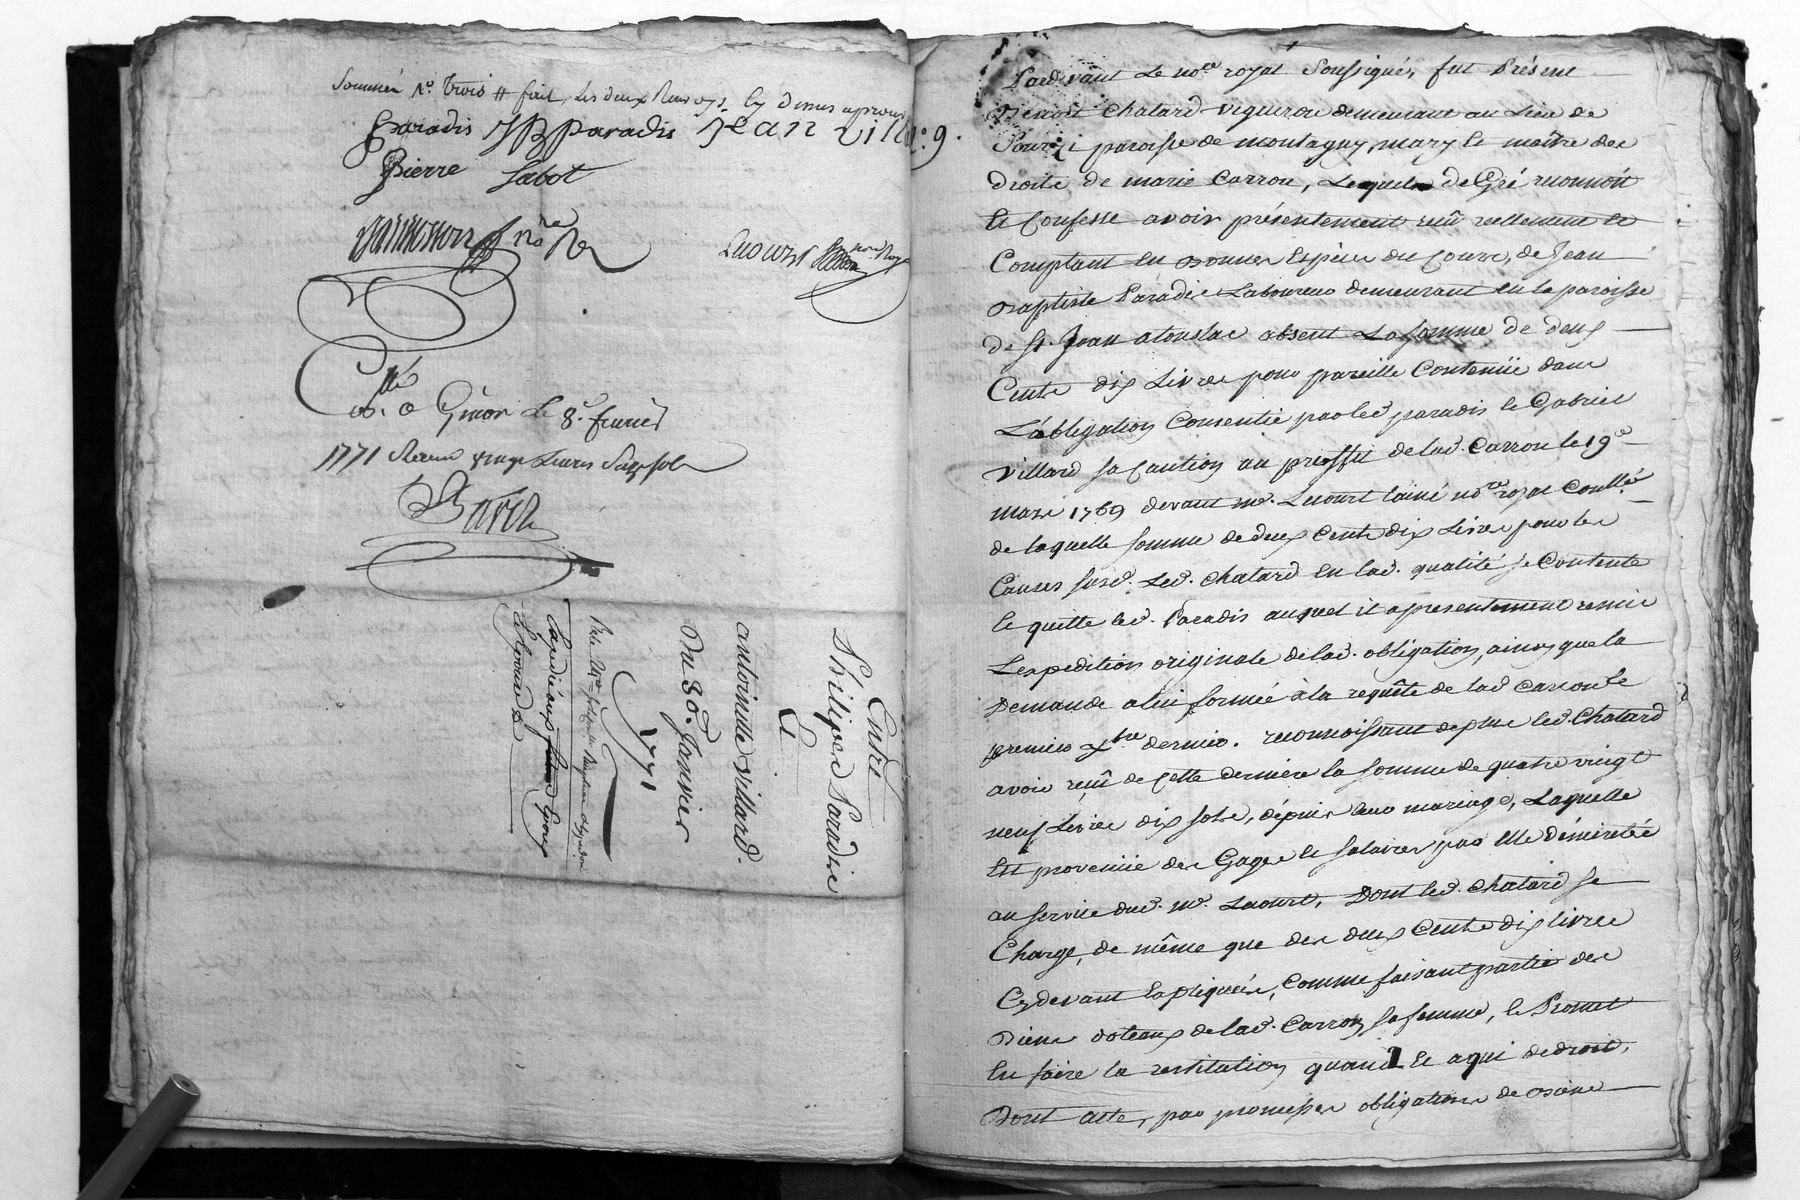 Sommén n.° trois # fait, les deux Renvoys cy dessus aprouvé
Paradis JB paradis jean villa
Pierre Sabot
no.re Ral
Lacourt no.re Royal
C.llé a Givor Le 8.e fevrier
1771 Receu vingt Livres Seize sols
Entre
Philipe Paradis
Et
antoinette Villard.
Du 30.e Janvier
1771
N.° 9.
Pardevant Le no.re royal Soussigné, fut Présent
Benoit Chatard vigneron demeurant au Lieu de
Sourzi paroisse de montagny, mary et maître des
droits de marie Carron, Lequel de Gré reconnoît
et Confesse avoir présentement reçû réellement et
Comptant en Bonnes Espèces du Cours, de Jean
Baptiste Paradis Laboureur demeurant en la paroisse
de St. Jean atouslas absent La somme de deux
Cents dix Livres pour pareille Contenüe dans
L'obligation Consentie par led. paradis et Gabriel
Villard sa Caution au proffit de lad. Carron le 19.e
mars 1769 devant m.e Lacourt l'ainé no.re royal Conllé
de laquelle somme de deux Cents dix Livres pour les
Causes susd. Led. Chatard en lad. qualité se Contente
et quitte led. Paradis auquel il a presentement remis
Lexpedition originale de lad. obligation, ainsy que la
Demande a lui formée à la requête de lad Carron le
premier xbre dernier. reconnoissant de plus led. Chatard
avoir reçû de Cette dernière la somme de quatre vingt
neuf Livres dix sols, dépuis leur mariage, Laquelle
Est provenüe des Gages et salaires par Elle Démeritée
au service dud. m.e Lacourt, Dont led. Chatard se
Charge, de même que des deux Cents dix livres
Cy devant Expliquées, Comme faisant partie des
Biens dotaux de lad. Carron sa femme, et Promet
En faire la restitution quand Et a qui de droit,
Dont acte, par promesses obligations de Biens